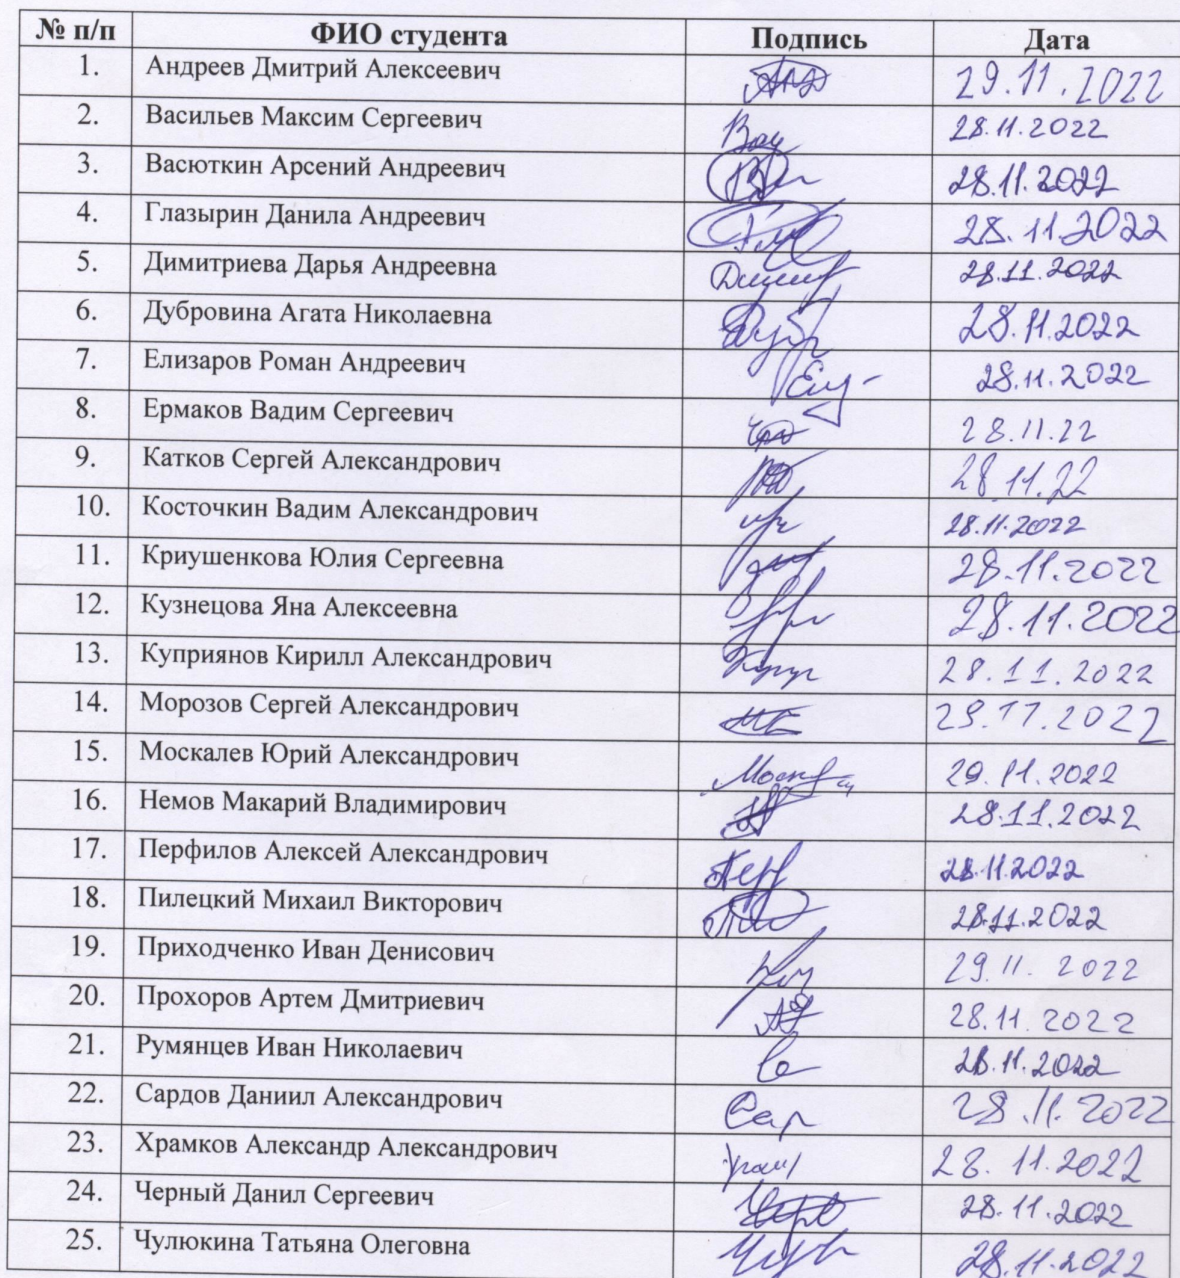 № п/п ФИО студента Подпись Дата
1. Андреев Дмитрий Алексеевич 29.11.2022
2. Васильев Максим Сергеевич 28.11.2022
3. Васюткин Арсений Андреевич 28.11.2022
4. Глазырин Данила Андреевич 28.11.2022
5. Димитриева Дарья Андреевна 28.11.2022
6. Дубровина Агата Николаевна 28.11.2022
7. Елизаров Роман Андреевич 28.11.2022
8. Ермаков Вадим Сергеевич 28.11.22
9. Катков Сергей Александрович 28.11.22
10. Косточкин Вадим Александрович 28.11.2022
11. Криушенкова Юлия Сергеевна 28.11.2022
12. Кузнецова Яна Алексеевна 28.11.2022
13. Куприянов Кирилл Александрович 28.11.2022
14. Морозов Сергей Александрович 29.11.2022
15. Москалев Юрий Александрович 29.11.2022
16. Немов Макарий Владимирович 28.11.2022
17. Перфилов Алексей Александрович 28.11.2022
18. Пилецкий Михаил Викторович 28.11.2022
19. Приходченко Иван Денисович 29.11.2022
20. Прохоров Артем Дмитриевич 28.11.2022
21. Румянцев Иван Николаевич 28.11.2022
22. Сардов Даниил Александрович Сар 28.11.2022
23. Храмков Александр Александрович 28.11.2022
24. Черный Данил Сергеевич 28.11.2022
25. Чулюкина Татьяна Олеговна 28.11.2022